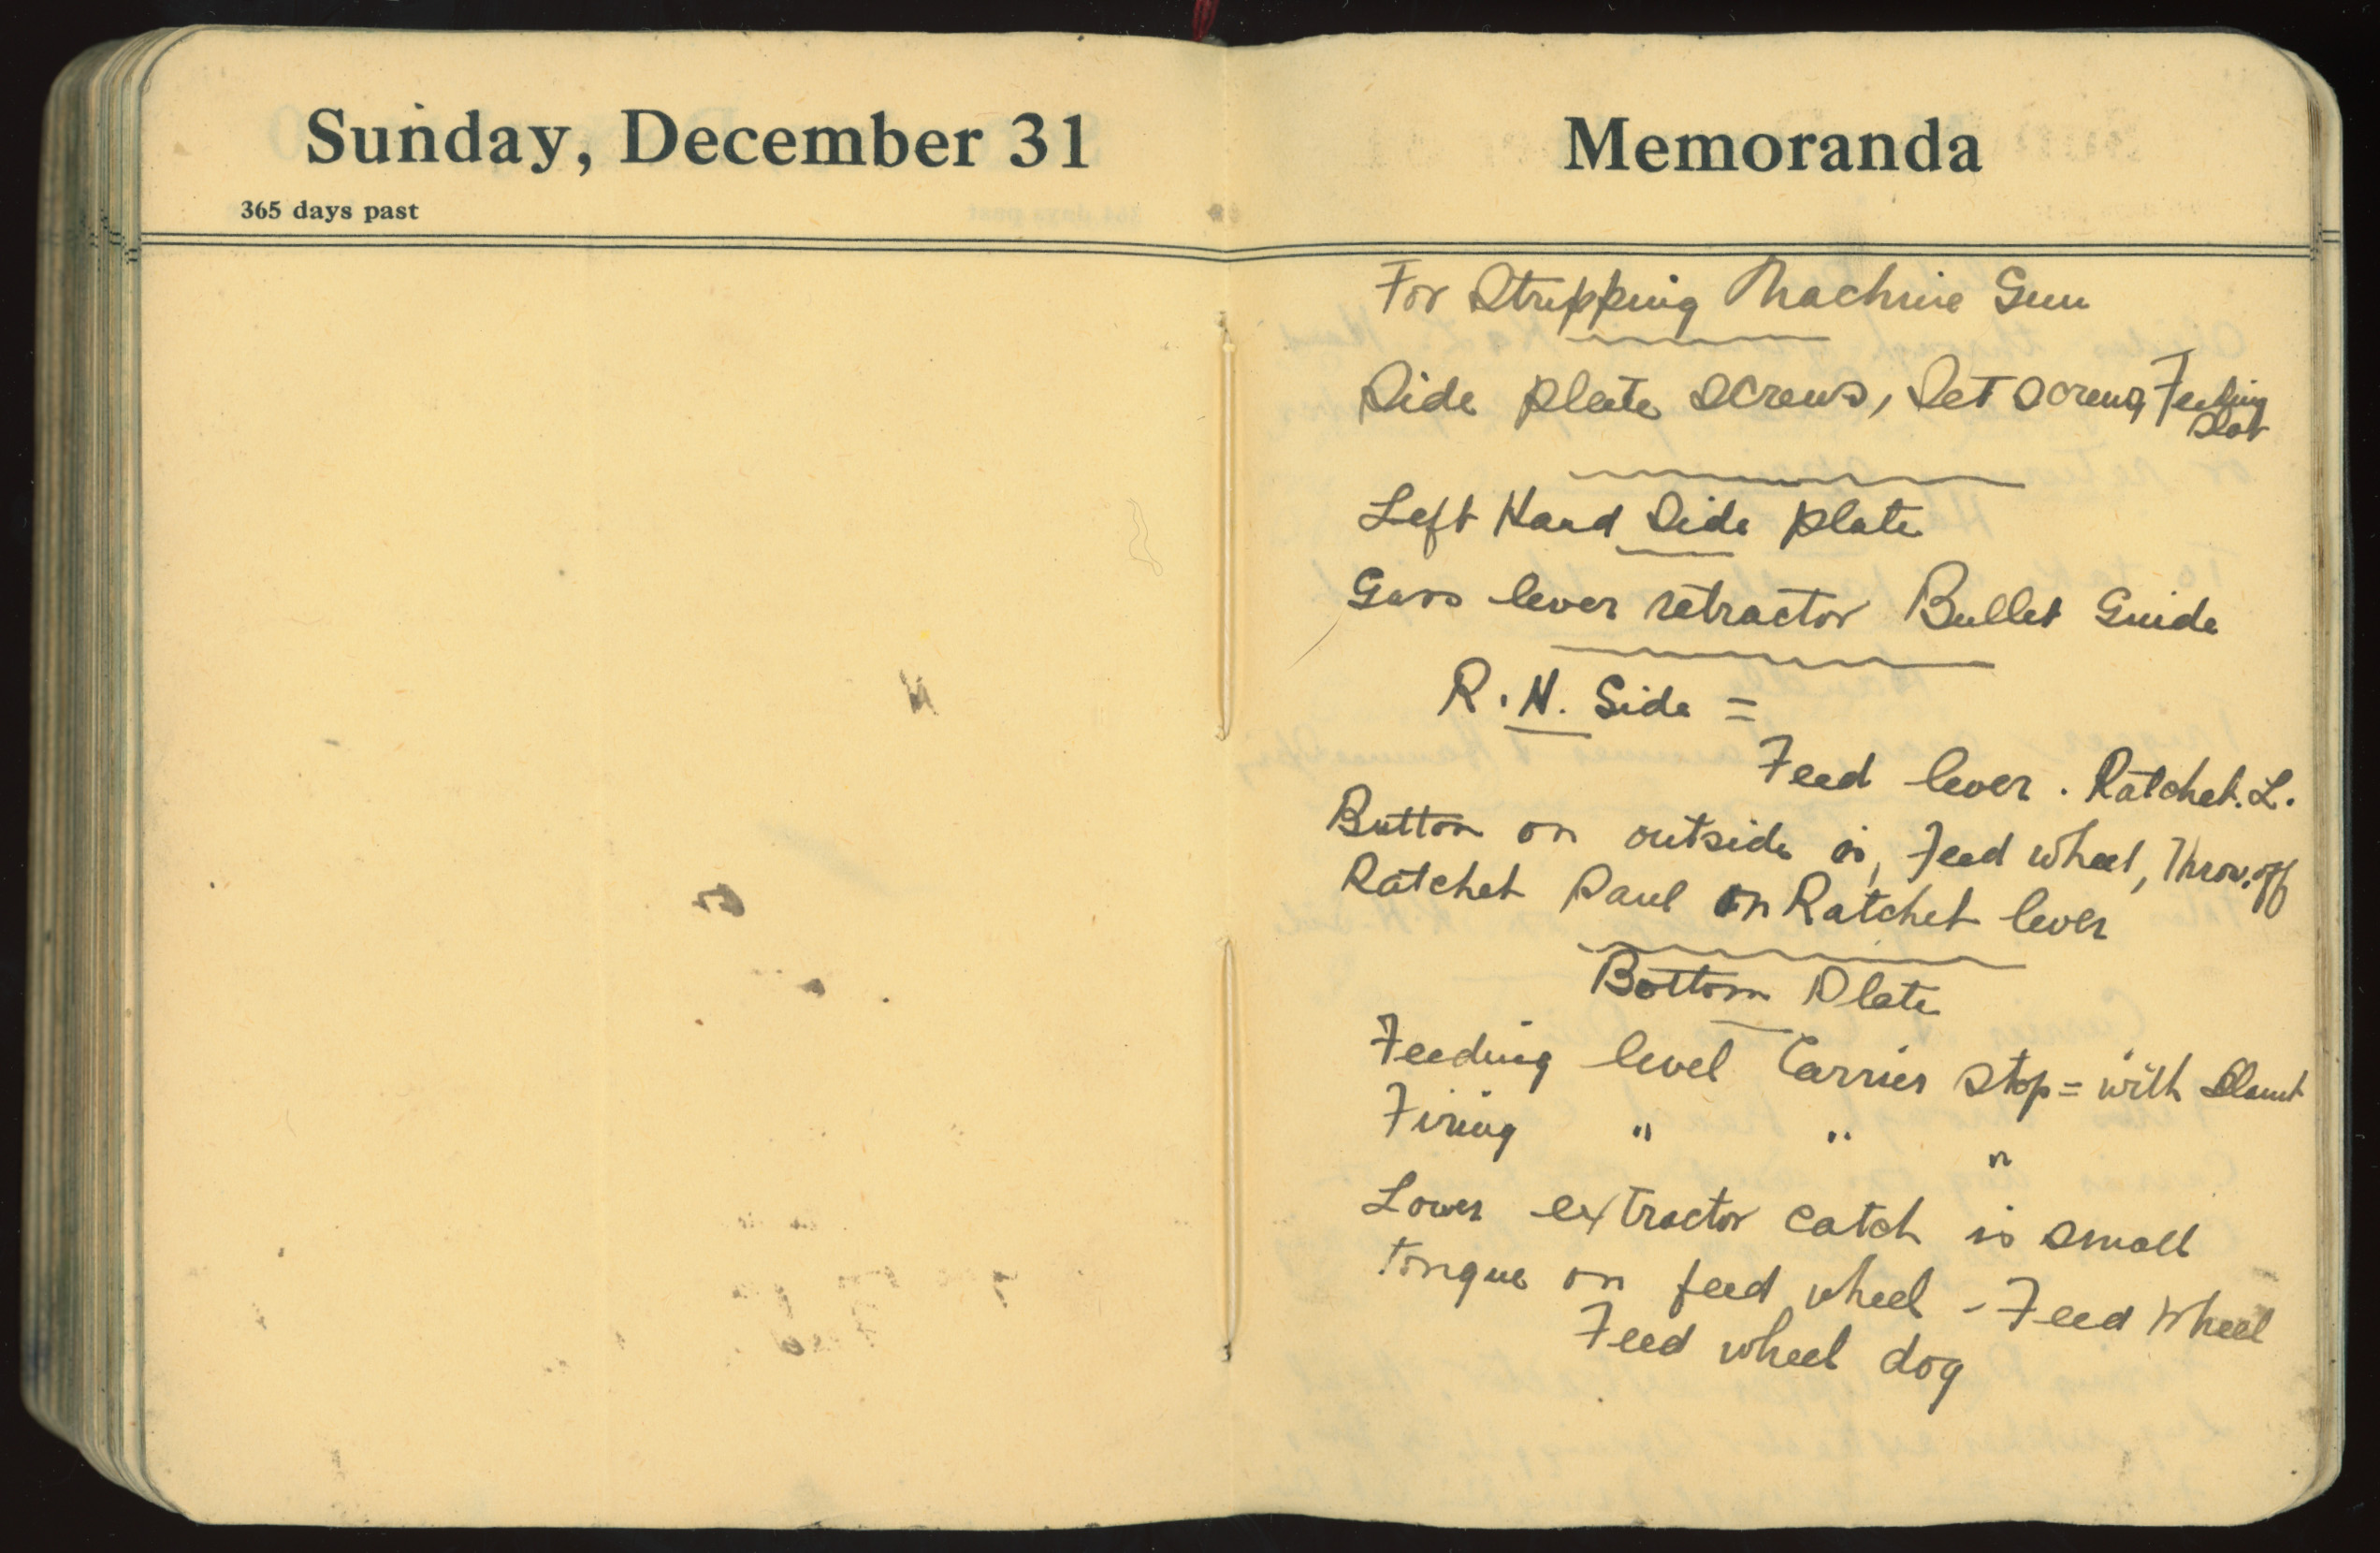 Sunday, December 31
365 days past
Memoranda
For Stripping Machine Gun
Side plate screws, Set screws, Feeding
Slot
Left Hand Side plate
Gass lever retractor Bullet Guide
R. H. Side =
Feed lever. Ratchet. L.
Button on outside is, Feed wheel, Throw.off
Ratchet Paul on Ratchet lever
Bottom Plate
Feeding level Carrier stop = with Slant
Firing " " "
Lower extractor catch is small
tongue on feed wheel - Feed Wheel
Feed wheel dog